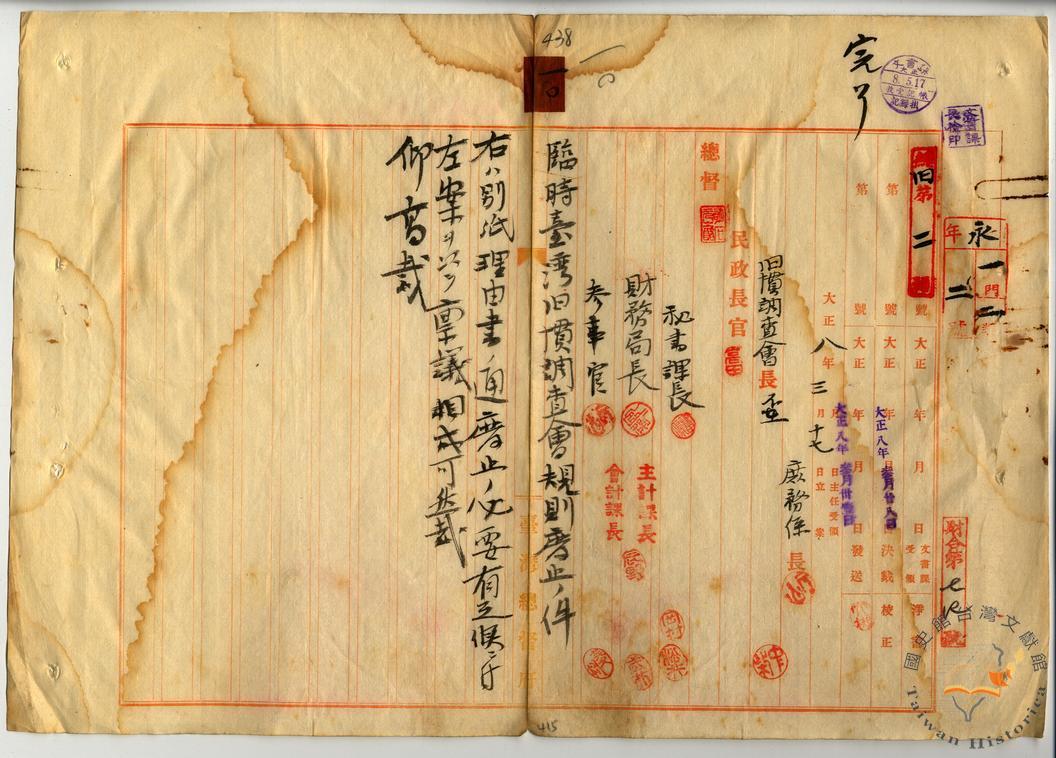 438
完了
8.5.17
永
年
一
門
二
旧第二號
第 號 大正 年 月 日決裁 校正
大正八年參月廿八日
第 號 大正 年 月 日發送
大正八年參月卅壹日
文書課受領
淨書
財會第
大正八年三月十七日立案
月 日主任受領
旧慣調査會長
庶務係長
民政長官
總督
秘書課長
財務局長
參事官
主計課長
會計課長
臨時臺湾旧慣調査會規則廢止ノ件
右ハ別紙理由書ノ通廢止ノ必要有之候ニ付
左案ヲ以テ稟議相成可然哉
仰高裁
臺灣總督府
415
國史館台灣文獻館
Taiwan Historica